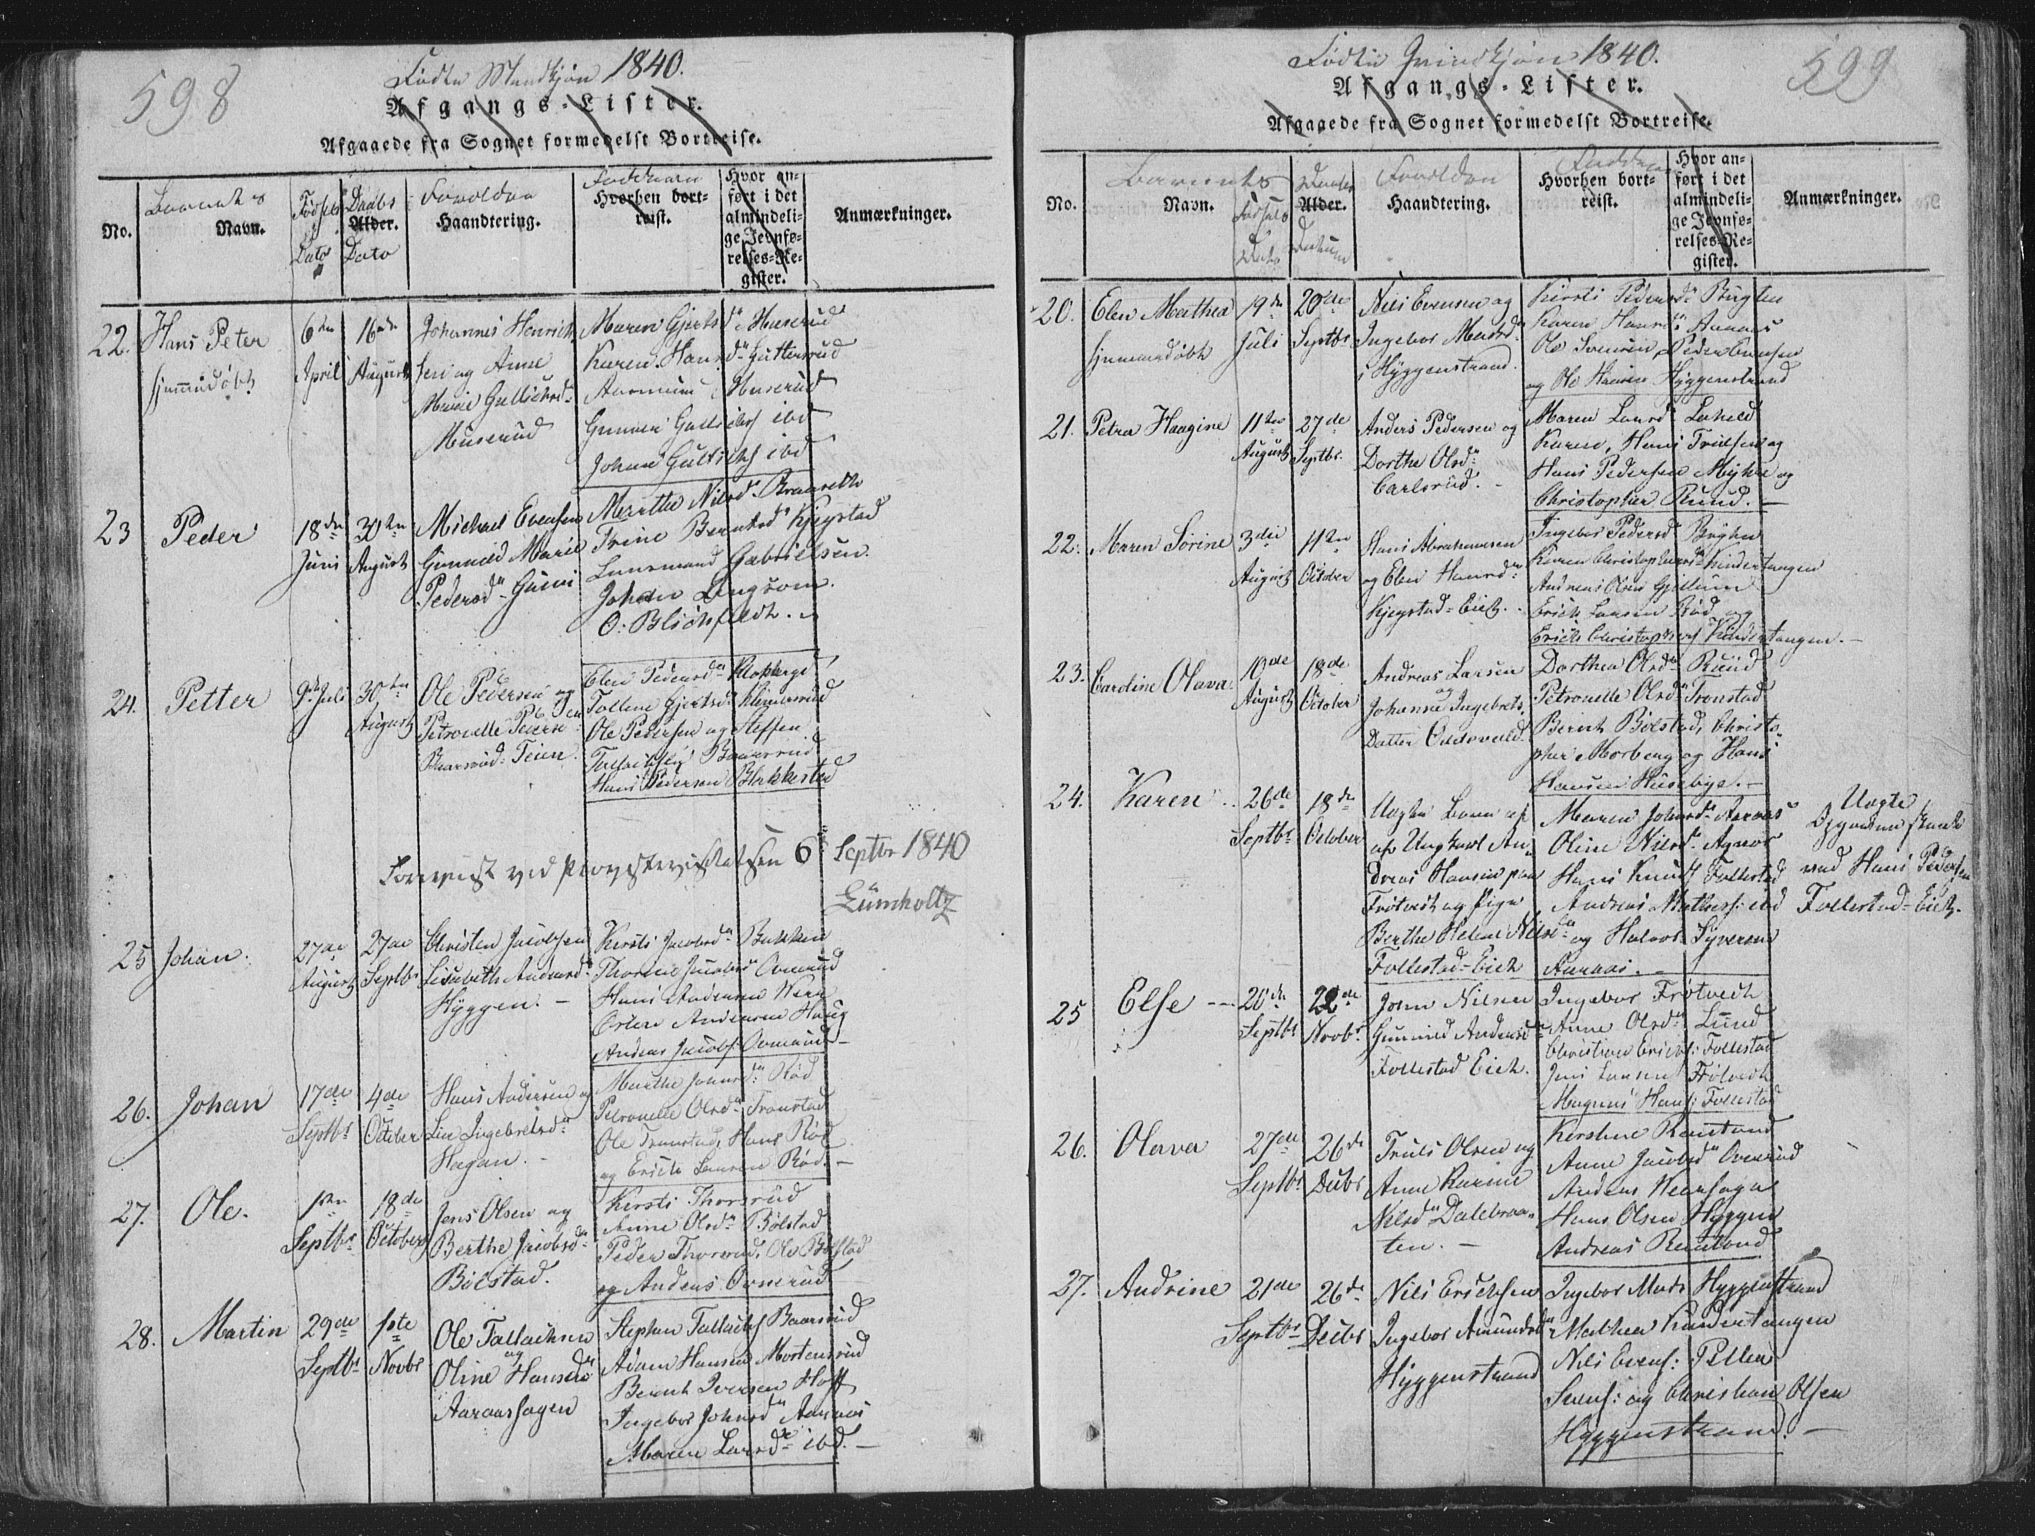 598
Fødte Mandkjøn 1840.
Afgangs-Lister.
Afgaaede fra Sognet formedelst Bortreise.
No.
Barnets
Navn.
Fødsels
Dato
Daabs
Alder.
Dato
Forældre
Haandtering.
Faddere
Hvorhen bort-
reist.
Hvor an-
ført i det
almindeli-
ge Jevnfø-
relses-Re-
gister.
Anmærkninger.
22. Hans Peter
hjemmedøbt
6te
April
16de
August
Johannes Henrich
sen og Anne
Marie Gullichsd.
Muserud
Maren Gjertsd. Muserud
Karen Hansd. Guttersrud
Huserud
Gunner Gullichs. ibd
Johan Gullichs. ibd
23 Peder
18de
Juni
30te
August
Michael Evensen
Gunnild Marie
Pedersd.
Marthe Nilsd.
Trine Berntsd. Kjegstad
Lensmand Gabrielsen
Johan
O. Blichfeldt.
24. Petter
9de Juli
30te
August
Ole Pedersen og
Petronelle Peders-
Baarsrud-Teien.
Elen Pedersd. Klokkergd.
Tollene Gjertsd.
Ole Pedersen og Steffen
Hans Pedersen Blakkestad
Foreviist ved Provstevisitatsen 6te Septbr 1840
Lumholtz
25 Johan.
27de
August
27de
Septbr
Christen Jacobsen
Lisabeth Andersd.
Hyggen. –
Kersti Jacobsd. Bakken
Thorine Jacobsd. Ovnerud
Hans Andersen Werp
Andersen Haug
Anders Jacobs. Ovnerud –
26. Johan
17de
Septbr
4de
October
Hans Andersen og
Lise Ingebretsd.
Hagan. –
Marthe Johnsd. Rød
Petronelle Olsd. Tronstad
Ole Tronstad, Hans Rød
og Erich Larsen Rød. –
27. Ole.
1ste
Septbr
18de
October
Jens Olsen og
Berthe Jacobsd.
Bölstad.
Kersti Thorsrud
Anne Olsd. Bölstad
Peder Thorsrud, Ole Bölstad
og Anders Ovnerud
28. Martin
29de
Septbr
1ste
Novbr
Ole Tallachsen
og
Oline Hansd.
Aaraashagen
Stephen Tallachs. Baarsrud
Adam Hansen Mortensrud
Bernt Iversen Hoff
Ingebor Johnsd. Aaraas
Maren Larsd. ibd. –
599
Fødte Qvindkjøn 1840.
Afgangs-Lister.
Afgaaede fra Sognet formedelst Bortreise.
No.
Barnets
Navn.
Fødsels
Dato
Daabs
Alder.
Datum
Forældre
Haandtering.
Faddere
Hvorhen bort-
reist.
Hvor an-
ført i det
almindeli-
ge Jevnfø-
relses-Re-
gister.
Anmærkninger.
20. Elen Mathea
hjemmedøbt
19de
Juli
20de
Septbr
Nils Evensen og
Ingebor Madsd.
i Hyggenstrand.
Kersti Pedersd. Bugten
Karen Hansd. Aaraas
Ole Svensen, Peder Evensen
og Ole Hansen Hyggenstrand
21. Petra Haagine
11te
August
27de
Septbr.
Anders Pedersen og
Dorthe Olsd.
Carlsrud. –
Maren Larsd.
Karen, Hans og
Hans Pedersen Myhre og
Christopher Ruud. –
22. Maren Sørine
3die
August
11te
October
Hans Abrahamsen
og Elen Hansd.
Kjegstad-Eiet.
Ingebor Pedersd. Bugten
Karen Christophersd. Kindertangen
Andreas Olsen Gjellum
Erich Larsen Rød og
Erich Christophers. Kindertangen. –
23. Caroline Olava.
10de
August
18de
October
Andreas Larsen
og
Johanne Ingebrets
Datter Oddevald.
Dorthea Olsd. Ruud
Petronelle Olsd. Tronstad
Bernt Bölstad, Christo-
pher Morberg og Hans
Hansen Husebye. –
24. Karen
26de
Septbr
18de
October
Uægte Barn af
af Ungkarl An-
dreas Hansen paa
Frøtvedt og Pige
Berthe Helene Nilsd.
Follestad-Eiet
Maren Johnsd. Aaraas
Oline Nilsd. Agnor
Hans Knuds. Follestad
Andreas Mathias. ibd
og Halvor Syversen
Aaraas. –
Uægte
ved Hans Pedersen
Follestad-Eiet.
25 Else
20de
Septbr
22de
Novbr
John Nilsen
Gunnild Andersd.
Follestad Eiet.
Ingebor Frøtvedt
Anne Olsd. Lund
Christian Erichs. Follestad
Jens Larsen Frøtvedt
Magnus Hans. Follestad
26. Olava
27de
Septbr
26de
Decbr
Truls Olsen og
Anne Karine
Nilsd. Dalebraa-
ten. –
Kirstine Ramstand
Anne Jacobsd. Ovnerud
Anders Weiersagen
Hans Olsen Hyggen
Andreas
27. Andrine
21de
Septbr
26de
Decbr
Nils Erichsen
Ingebor Amundsd.
Hyggenstrand
Ingebor Mads. Hyggenstrand
Mathea Kindertangen
Nils Evens: Petter
Svens: og Christian Olsen
Hyggenstrand. –